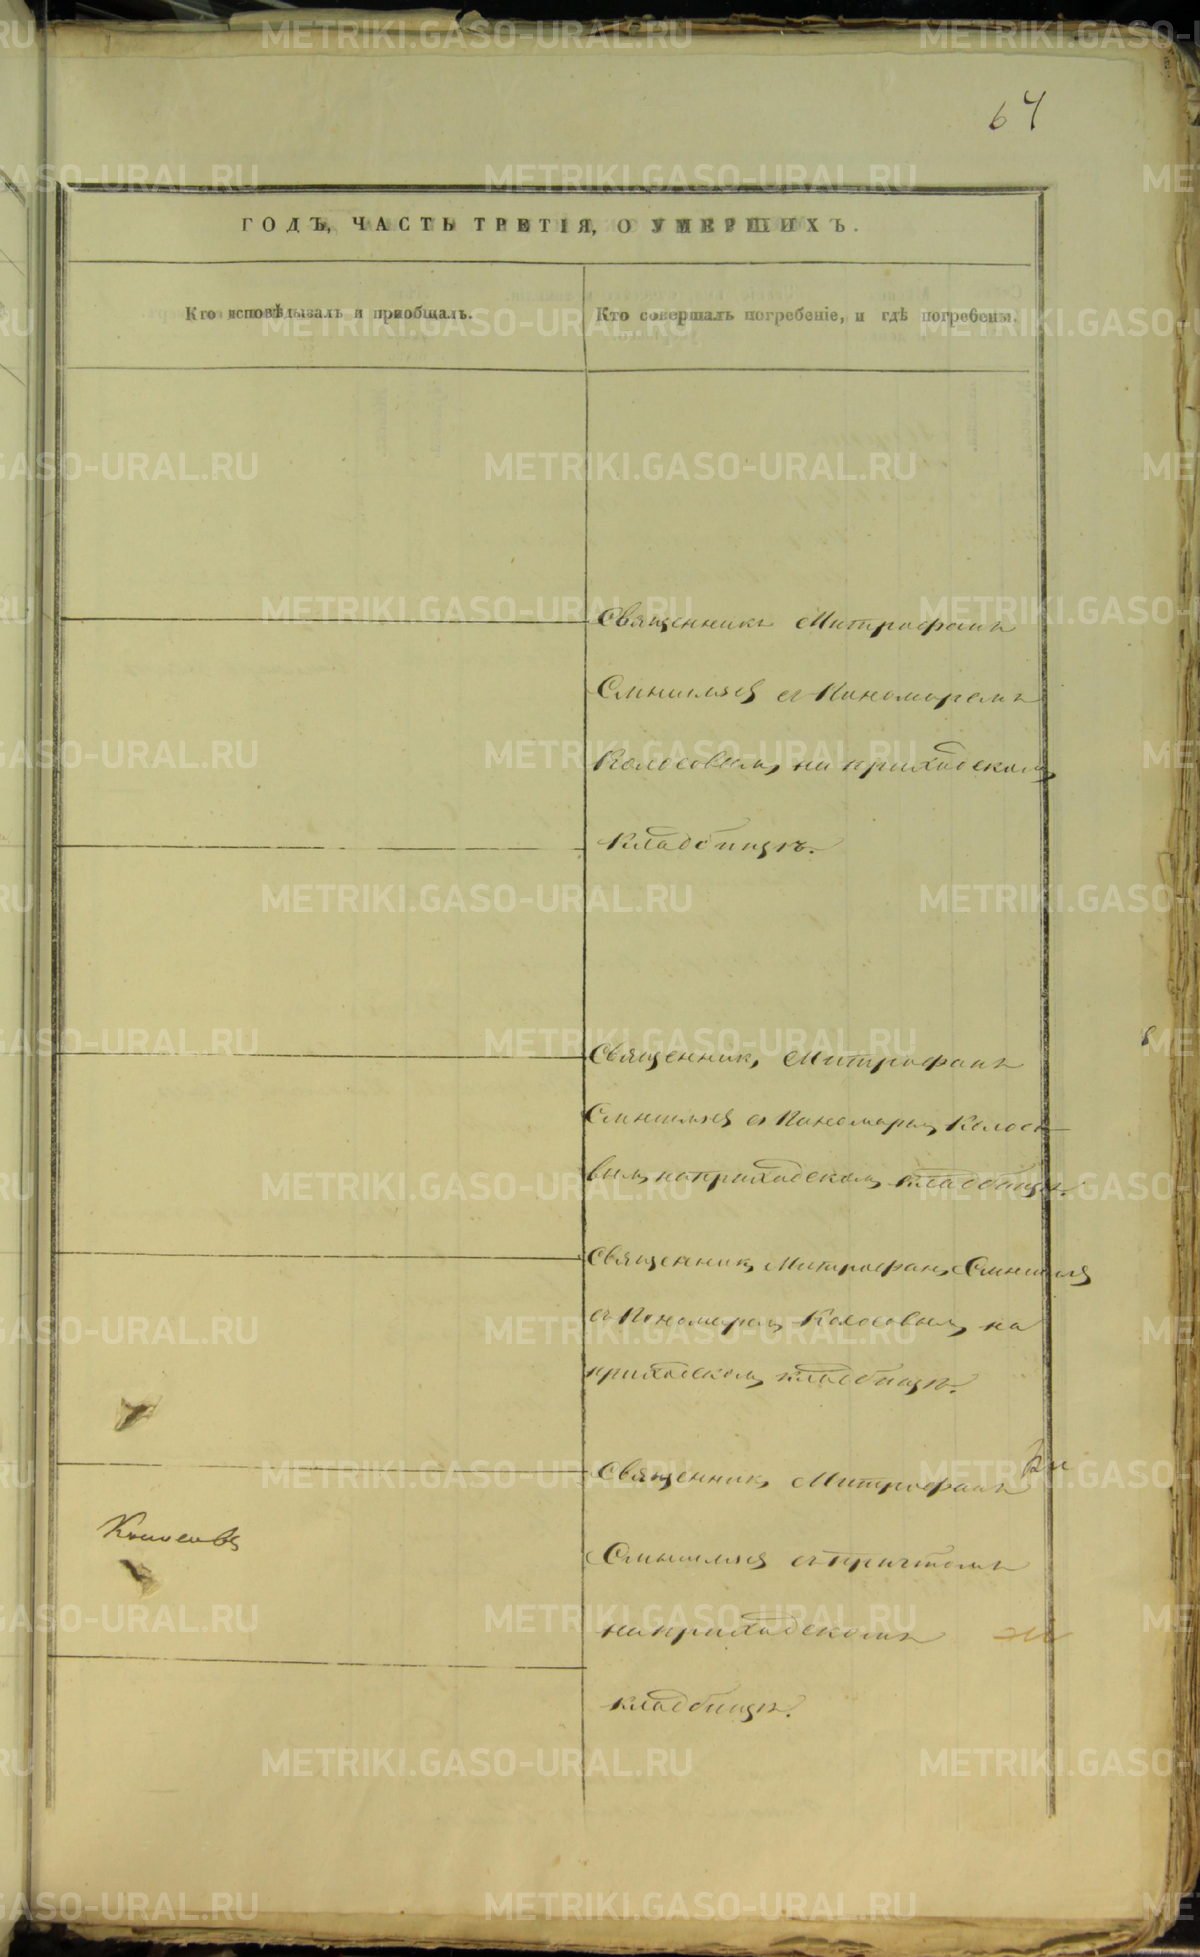 64
ГОДЪ, ЧАСТЬ ТРЕТІЯ, О УМЕРШИХЪ.
Кто исповѣдывалъ и пріобщалъ.
Кто совершалъ погребеніе, и гдѣ погребены.
Священникъ Митрофанъ
съ Пономаремъ
Колосовымъ на приходскомъ
кладбищѣ.
Священникъ Митрофанъ
съ Пономаремъ Колосо-
вымъ на приходскомъ кладбищѣ.
Священникъ Митрофанъ
съ Пономаремъ Колосовымъ на
приходскомъ кладбищѣ.
Священникъ Митрофанъ
съ причтомъ
на приходскомъ
кладбищѣ.
METRIKI.GASO-URAL.RU